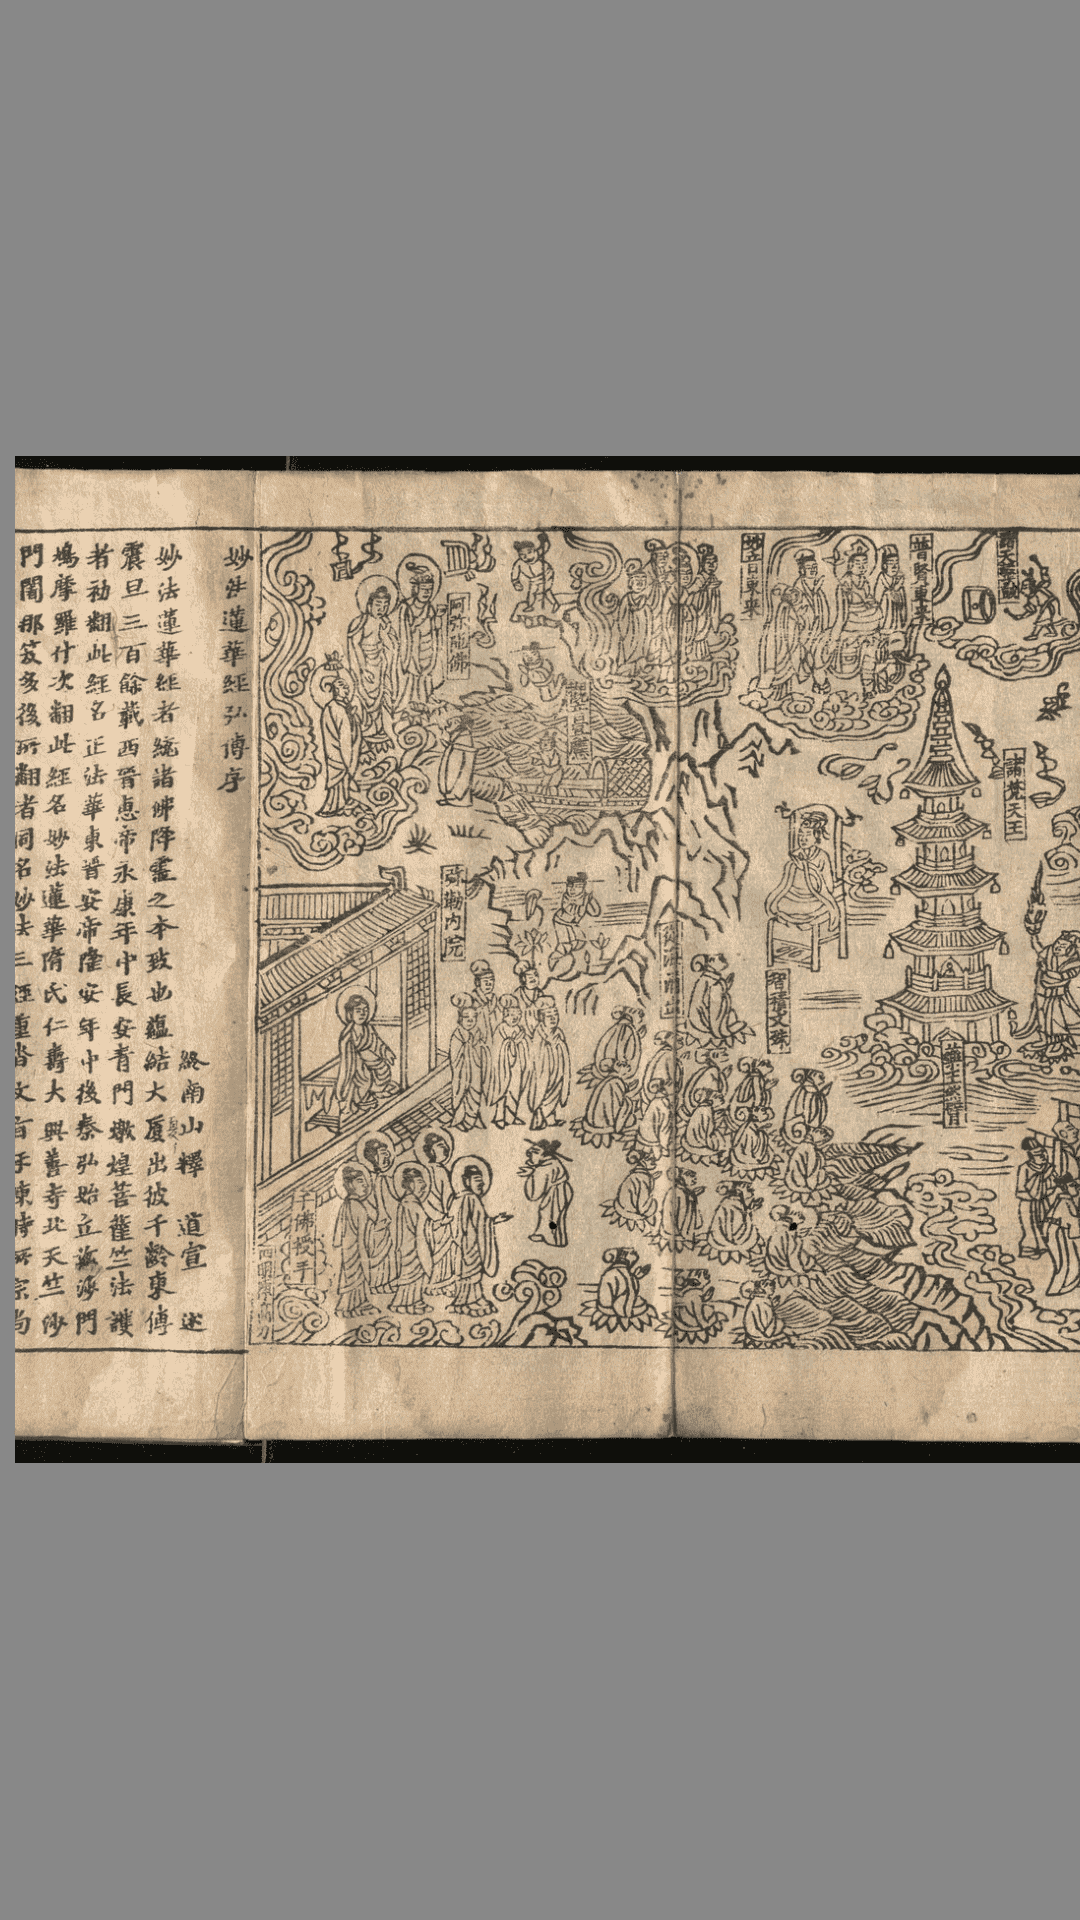 諸天擊鼓
諸梵天王
普賢東來
藥王然臂
妙音東來
智積文殊
從海涌出
阿弥陁佛
弥勒内院
千佛授手
妙法蓮華經弘傳序
終南山釋 道宣 述
妙法蓮華經者統諸佛降靈之本致也蘊結大厦出彼千齡東傳
震旦三百餘載西晉惠帝永康年中長安青門燉煌菩薩竺法護
者初翻此經名正法華東晉安帝隆安年中後秦弘始丘滋沙門
鳩摩羅什次翻此經名妙法蓮華隋氏仁壽大興善寺北天竺沙
門闍那笈多後所翻者同名妙法三經重沓文旨